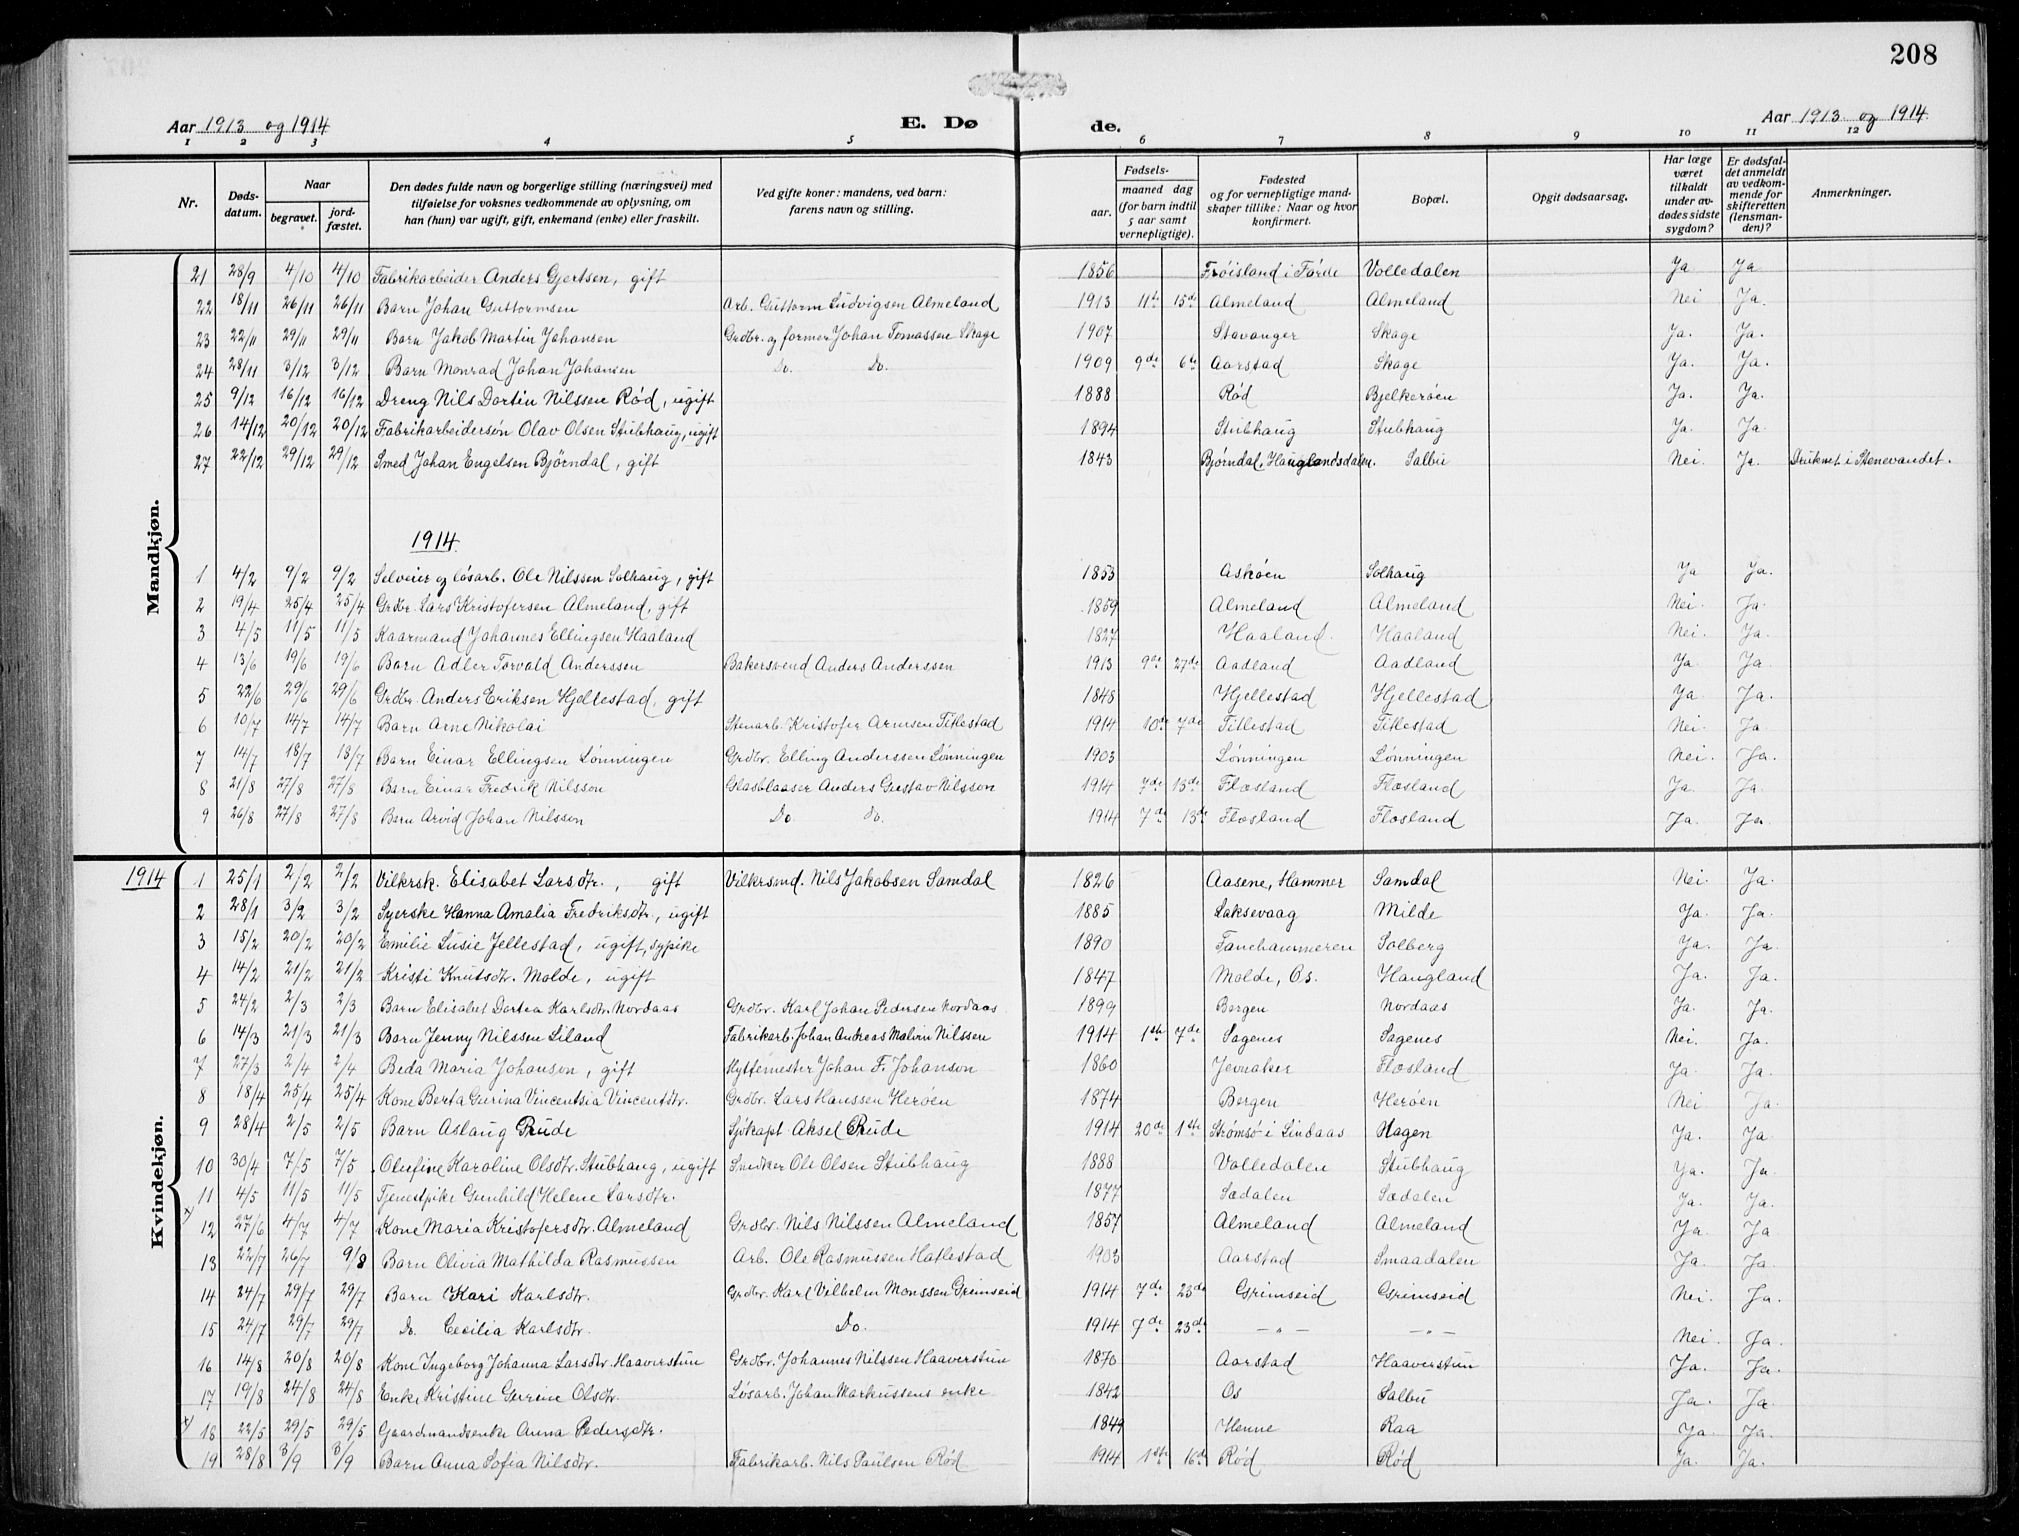 208
Aar 1913 og 1914
E. Dø de.
Aar 1913 og 1914.
1 2 3 4 5 6 7 8 9 10 11 12
Nr. | Døds-datum. | Naar begravet. | jord-fæstet. | Den dødes fulde navn og borgerlige stilling (næringsvei) med tilføielse for voksnes vedkommende av oplysning, om han (hun) var ugift, gift, enkemand (enke) eller fraskilt. | Ved gifte koner: mandens, ved barn: farens navn og stilling. | Fødsels- aar. | maaned dag (for barn indtil 5 aar samt vernepligtige). | Fødested og for vernepligtige mandskaper tillike: Naar og hvor konfirmert. | Bopæl. | Opgit dødsaarsag. | Har læge været tilkaldt under avdødes sidste sygdom? | Er dødsfaldet anmeldt av vedkommende for skifteretten (lensmanden)? | Anmerkninger.
Mandkjøn.
21 28/9 4/10 4/10 Fabrikarbeider Anders Gjertsen, gift 1856 Frøisland i Førde Volledalen Ja Ja
22 18/11 26/11 26/11 Barn Johan Guttormsen Arb. Guttorm Ludvigsen Almeland 1913 11te 15de Almeland Almeland Nei Ja.
23 22/11 29/11 29/11 Barn Jakob Martin Johansen Grdbr. og former Johan Tomassen Skage 1907 Stavanger Skage Ja. Ja.
24 28/11 3/12 3/12 Barn Monrad Johan Johansen Do. Do. 1909 9de 6te Aarstad Skage Ja. Ja.
25 9/12 16/12 16/12 Dreng Nils Dortin Nilssen Rød, ugift 1888 Rød Bjelkerøen Ja. Ja.
26 14/12 20/12 20/12 Fabrikarbeidersøn Olav Olsen Stubhaug, ugift 1894 Stubhaug Stubhaug Ja. Ja.
27 22/12 29/12 29/12 Smed Johan Engelsen Bjørndal, gift 1843 Bjørndal, Hauglandsdalen. Salbu Nei. Ja. Druknet i Stenevandet.
1914
1 4/2 9/2 9/2 Selveier og løsarb. Ole Nilssen Solhaug, gift 1853 Askøen Solhaug Ja Ja.
2 19/4 25/4 25/4 Grdbr. Lars Kristofersen Almeland, gift 1859 Almeland Almeland Nei. Ja.
3 4/5 11/5 11/5 Kaarmand Johannes Ellingsen Haaland 1827 Haaland. Haaland Nei. Ja.
4 13/6 19/6 19/6 Barn Adler Torvald Anderssen Bakersvend Anders Anderssen 1913 9de 27de Aadland Aadland Ja Ja.
5 22/6 29/6 29/6 Grdbr. Anders Eriksen Hjellestad, gift 1848 Hjellestad Hjellestad Ja Ja.
6 10/7 14/7 14/7 Barn Arne Nikolai Stenarb. Kristofer Arnesen Titlestad 1914 10de 7de Titlestad Titlestad Nei. Ja
7 14/7 18/7 18/7 Barn Einar Ellingsen Lønningen Grdbr. Elling Anderssen Lønningen 1903 Lønningen Lønningen Nei. Ja.
8 21/8 27/8 27/8 Barn Einar Fredrik Nilsson Glasblaaser Anders Gustav Nilsson 1914 7de 15de Flesland Flesland Ja. Ja.
9 26/8 27/8 27/8 Barn Arvid Johan Nilsson Do. do. 1914 7de 13de Flesland Flesland Ja. Ja.
Kvindekjøn.
1914 1 25/1 2/2 2/2 Vilkersk. Elisabet Larsdtr., gift Vilkersmd. Nils Jakobsen Samdal 1826 Aasene, Hammer Samdal Nei. Ja.
2 28/1 3/2 3/2 Syerske Hanna Amalia Fredriksdtr, ugift 1885 Laksevaag Milde Ja. Ja.
3 15/2 20/2 20/2 Emilie Lusie Jellestad, ugift, sypike 1890 Fanehammeren Solberg Ja. Ja.
4 14/2 21/2 21/2 Kristi Knutsdtr. Molde, ugift 1847 Molde, Os. Haugland Ja. Ja.
5 24/2 2/3 2/3 Barn Elisabet Dortea Karlsdtr. Nordaas Grdbr. Karl Johan Pedersen Nordaas. 1899 Bergen Nordaas Ja. Ja.
6 14/3 21/3 21/3 Barn Jenny Nilssen Liland Fabrikarb. Johan Andreas Malvin Nilssen 1914 1ste 7de Sagenes Sagenes Nei. Ja.
7 27/3 2/4 2/4 Beda Maria Johanson, gift Hyttemester Johan F. Johanson 1860 Jevnaker Flesland Ja. Ja.
8 18/4 25/4 25/4 Kone Berta Gurina Vincentsia Vincentsdtr. Grdbr. Lars Hanssen Herøen 1874 Bergen Herøen Nei Ja.
9 28/4 2/5 2/5 Barn Aslaug Prude Sjøkapt Aksel Prude 1914 20de 1ste Strømsø i Lindaas Hagen Ja. Ja.
10 30/4 7/5 7/5 Olufine Karoline Olsdtr. Stubhaug, ugift Snedker Ole Olsen Stubhaug 1888 Volledalen Stubhaug Ja. Ja.
11 4/5 11/5 11/5 Tjenestpike Gunhild Helene Larsdtr. 1877 Sædalen Sædalen Ja. Ja.
x 12 27/6 4/7 4/7 Kone Maria Kristofersdtr. Almeland Grdbr. Nils Nilssen Almeland 1857 Almeland Almeland Ja. Ja.
13 22/7 26/7 9/8 Barn Olivia Mathilda Rasmussen Arb. Ole Rasmussen Hatlestad 1903 Aarstad Smaadalen Ja. Ja.
14 24/7 29/7 29/7 Barn Kari Karlsdtr. Grdbr. Karl Vilhelm Monssen Grimseid 1914 7de 23de Grimseid Grimseid Nei. Ja.
15 24/7 29/7 29/7 Do. Cecilia Karlsdtr. Do. 1914 7de 23de — „ — — „ — Nei. Ja.
16 14/8 20/8 20/8 Kone Ingeborg Johanna Larsdtr. Haaverstun Grdbr. Johannes Nilssen Haaverstun 1870 Aarstad Haaverstun Ja. Ja.
17 19/8 24/8 24/8 Enke Kristine Gurine Olsdtr. Løsarb. Johan Markussens enke 1842 Os Salbu Ja. Ja
x 18 22/5 29/5 29/5 Gaardmandsenke Anna Pedersdtr. 1849 Henne Raa Ja. Ja.
19 28/8 3/9 3/9 Barn Anna Sofia Nilsdtr. Fabrikarb. Nils Paulsen Rød 1914 1ste 16de Rød Rød Ja. Ja.